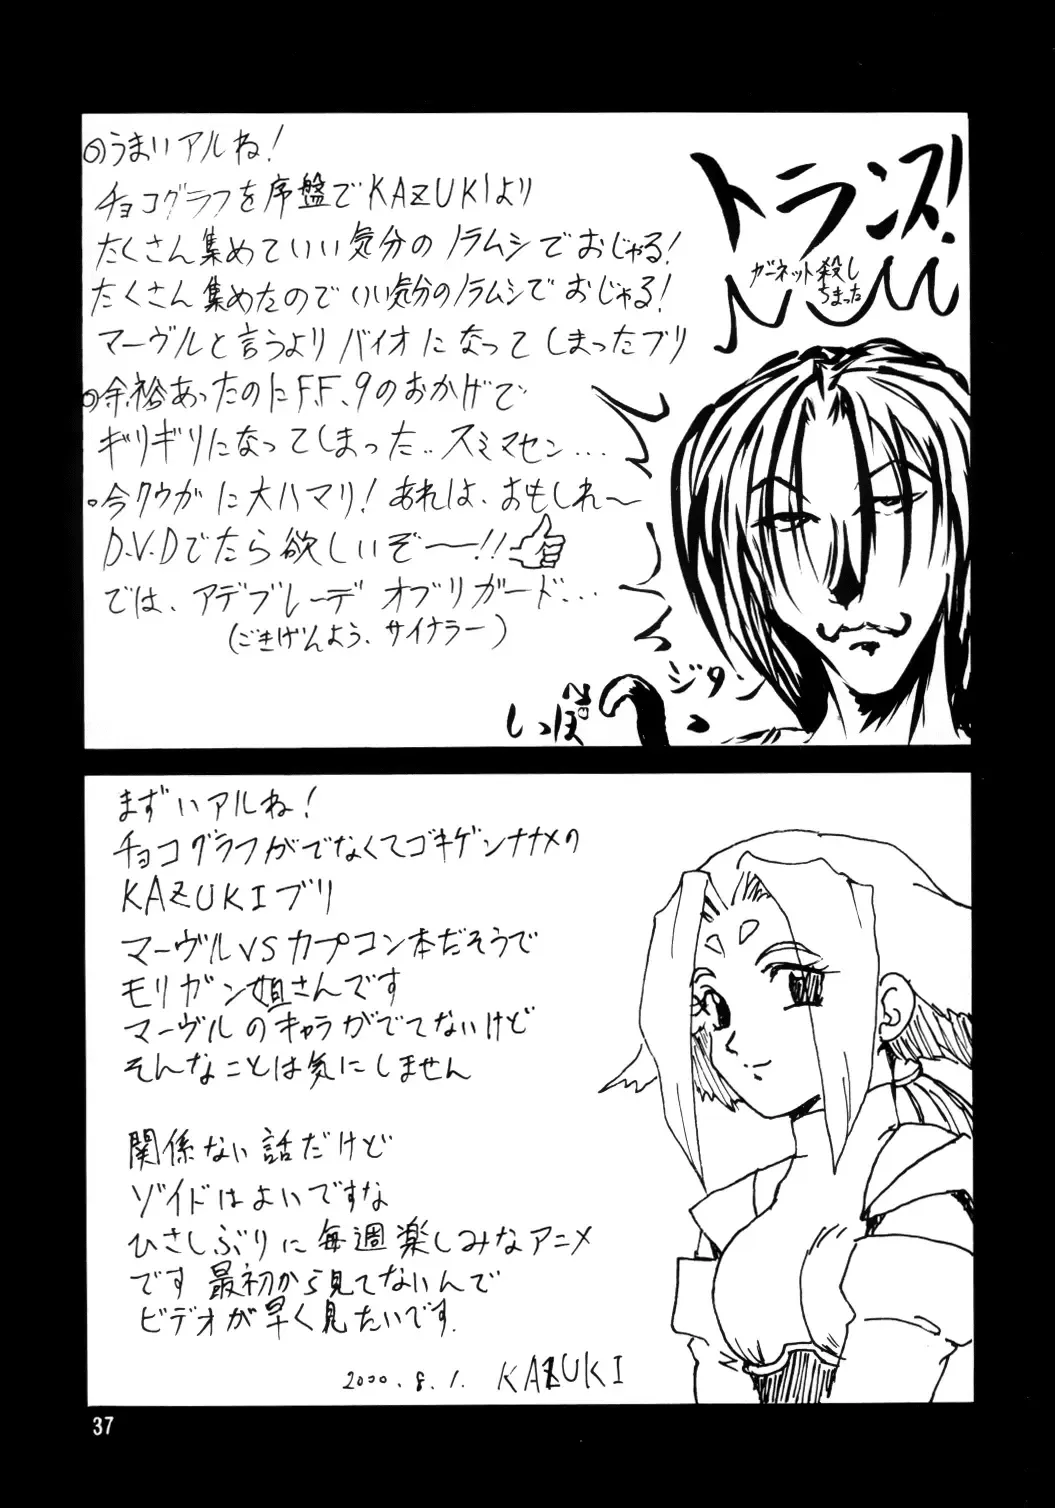 ○うまいアルね!
チョコグラフを序盤でKAZUKIより
たくさん集めていい気分のノラムシでおじゃる!
たくさん集めたのでいい気分のノラムシでおじゃる!
マーヴルと言うよりバイオになってしまったブリ
○余裕あったのにF.F.9のおかげで
ギリギリになってしまった..スミマセン...
○今クウガに大ハマリ!あれは、おもしれ〜
D.V.Dでたら欲しいぞ〜!!
では、アデブレーデ オブリガード...
(ごきげんよう、サイナラー)
トランス!
ガーネット殺し
ちまった
ジタン
しっぽ
まずいアルね!
チョコグラフがでなくてゴキゲンナナメの
KAZUKIブリ
マーヴルVSカプコン本だそうで
モリガン姐さんです
マーヴルのキャラがでてないけど
そんなことは気にしません
関係ない話だけど
ゾイドはよいですな
ひさしぶりに毎週楽しみなアニメ
です 最初から見てないんで
ビデオが早く見たいです.
2000.8.1. KAZUKI
37